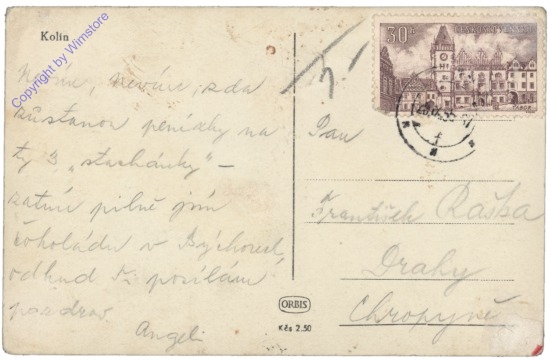 Kolín
Copyright by Wimstore
Nevím, Nevím, zda
zůstanou penízky na
ty 3 „stachánky" –
zatím pilně jím
čokoládu v Býchorech,
odkud Ti posílám
pozdrav
Angeli
30h
ČESKOSLOVENSKO
TÁBOR
Pan
František Raška
Drahy
Chropyně
ORBIS
Kčs 2.50